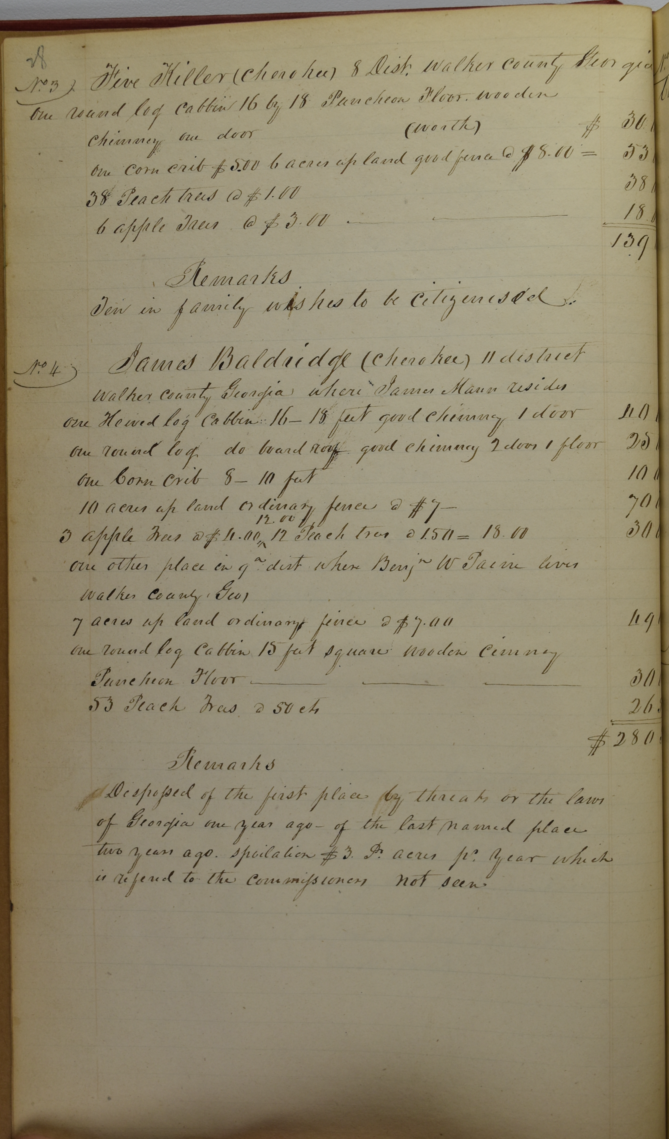 28
No 3 Five Killer (Cherokee) 8 Dist. Walker County Georgia
one round log cabbin 16 by 18 Puncheon Floor. wooden
chimney one door (worth) $ 30
one corn crib $5.00 6 acres up land good fence @ $8.00 = 53
38 Peach trees @ $1.00 38
6 apple Trees @ $3.00 — — 18
139
Remarks
Ten in family wishes to be citizenised
No 4 James Baldridge (Cherokee) 11 district
Walker County Georgia where James Mann resides
one Hewed log Cabbin 16 – 18 feet good chimney 1 door 40
one round log do board roof good chimney 2 doors 1 floor 25
one Corn crib 8 – 10 feet 10
10 acres up land ordinary fence @ $7 – 70
12.00
3 apple Trees @ $4.00, 12 Peach trees @ 150 = 18.00 30
one other place in 9th dist where Benjn W lives
Walker County. Geo
7 acres up land ordinary fence @ $7.00 49
one round log Cabbin 15 feet square wooden cimney
Puncheon Floor — — — 30
53 Peach Trees @ 50 cts 26
$ 280
Remarks
Dispossed of the first place by threats or the laws
of Georgia one year ago – of the last named place
two years ago. spoilation $3 Pr acres pr year which
is refered to the commissioners not seen